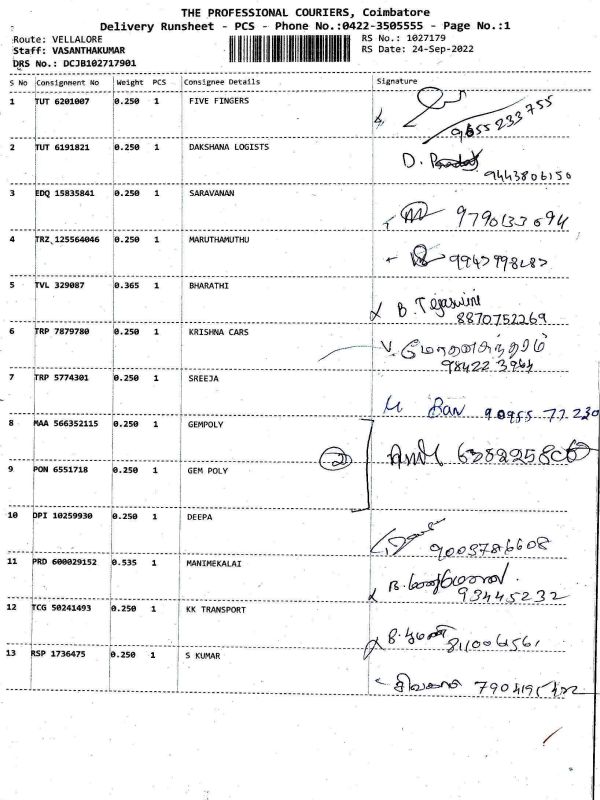 THE PROFESSIONAL COURIERS, Coimbatore
Delivery Runsheet - PCS - Phone No.:0422-3505555 - Page No.:1
Route: VELLALORE RS No.: 1027179
Staff: VASANTHAKUMAR RS Date: 24-Sep-2022
DRS No.: DCJB102717901
S No Consignment No Weight PCS Consignee Details Signature
1 TUT 6201007 0.250 1 FIVE FINGERS
9655233755
2 TUT 6191821 0.250 1 DAKSHANA LOGISTS D.
9443806150
3 EDQ 15835841 0.250 1 SARAVANAN
4 TRZ 125564046 0.250 1 MARUTHAMUTHU
5 TVL 329087 0.365 1 BHARATHI
B. Tejaswini
8870752269
6 TRP 7879780 0.250 1 KRISHNA CARS
V.
7 TRP 5774301 0.250 1 SREEJA
90955 77230
8 MAA 566352115 0.250 1 GEMPOLY
2
9 PON 6551718 0.250 1 GEM POLY
10 DPI 10259930 0.250 1 DEEPA
9003786608
11 PRD 600029152 0.535 1 MANIMEKALAI
93445232
12 TCG 50241493 0.250 1 KK TRANSPORT
13 RSP 1736475 0.250 1 S KUMAR